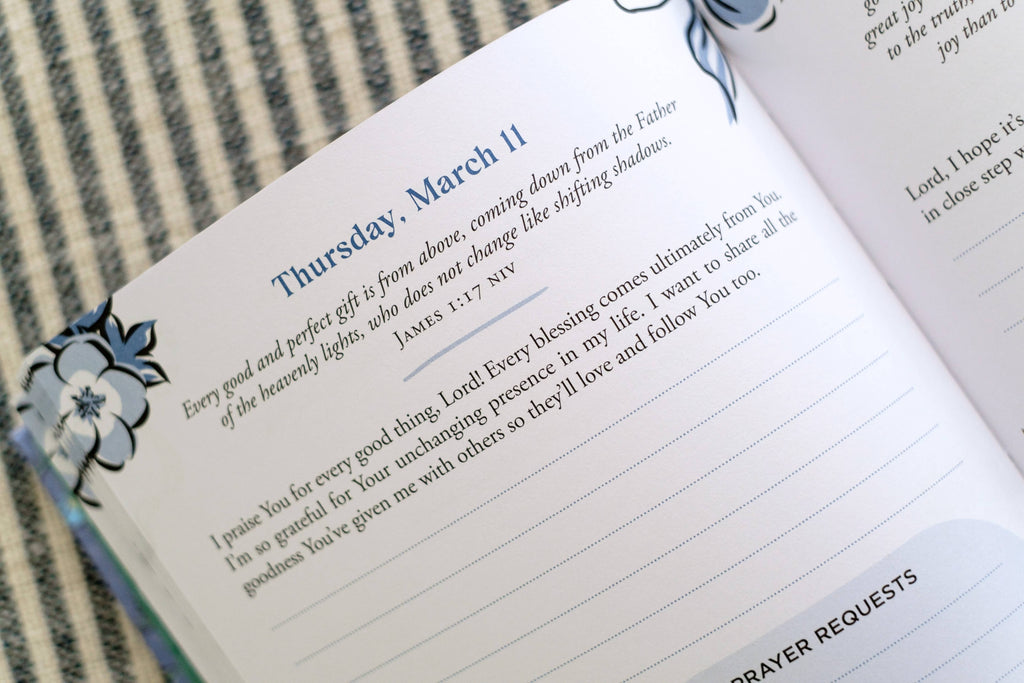 Thursday, March 11
Every good and perfect gift is from above, coming down from the Father
of the heavenly lights, who does not change like shifting shadows.
James 1:17 NIV
I praise You for every good thing, Lord! Every blessing comes ultimately from You.
I'm so grateful for Your unchanging presence in my life. I want to share all the
goodness You've given me with others so they'll love and follow You too.
PRAYER REQUESTS
great joy
to the truth,
joy than to
Lord, I hope it's
in close step